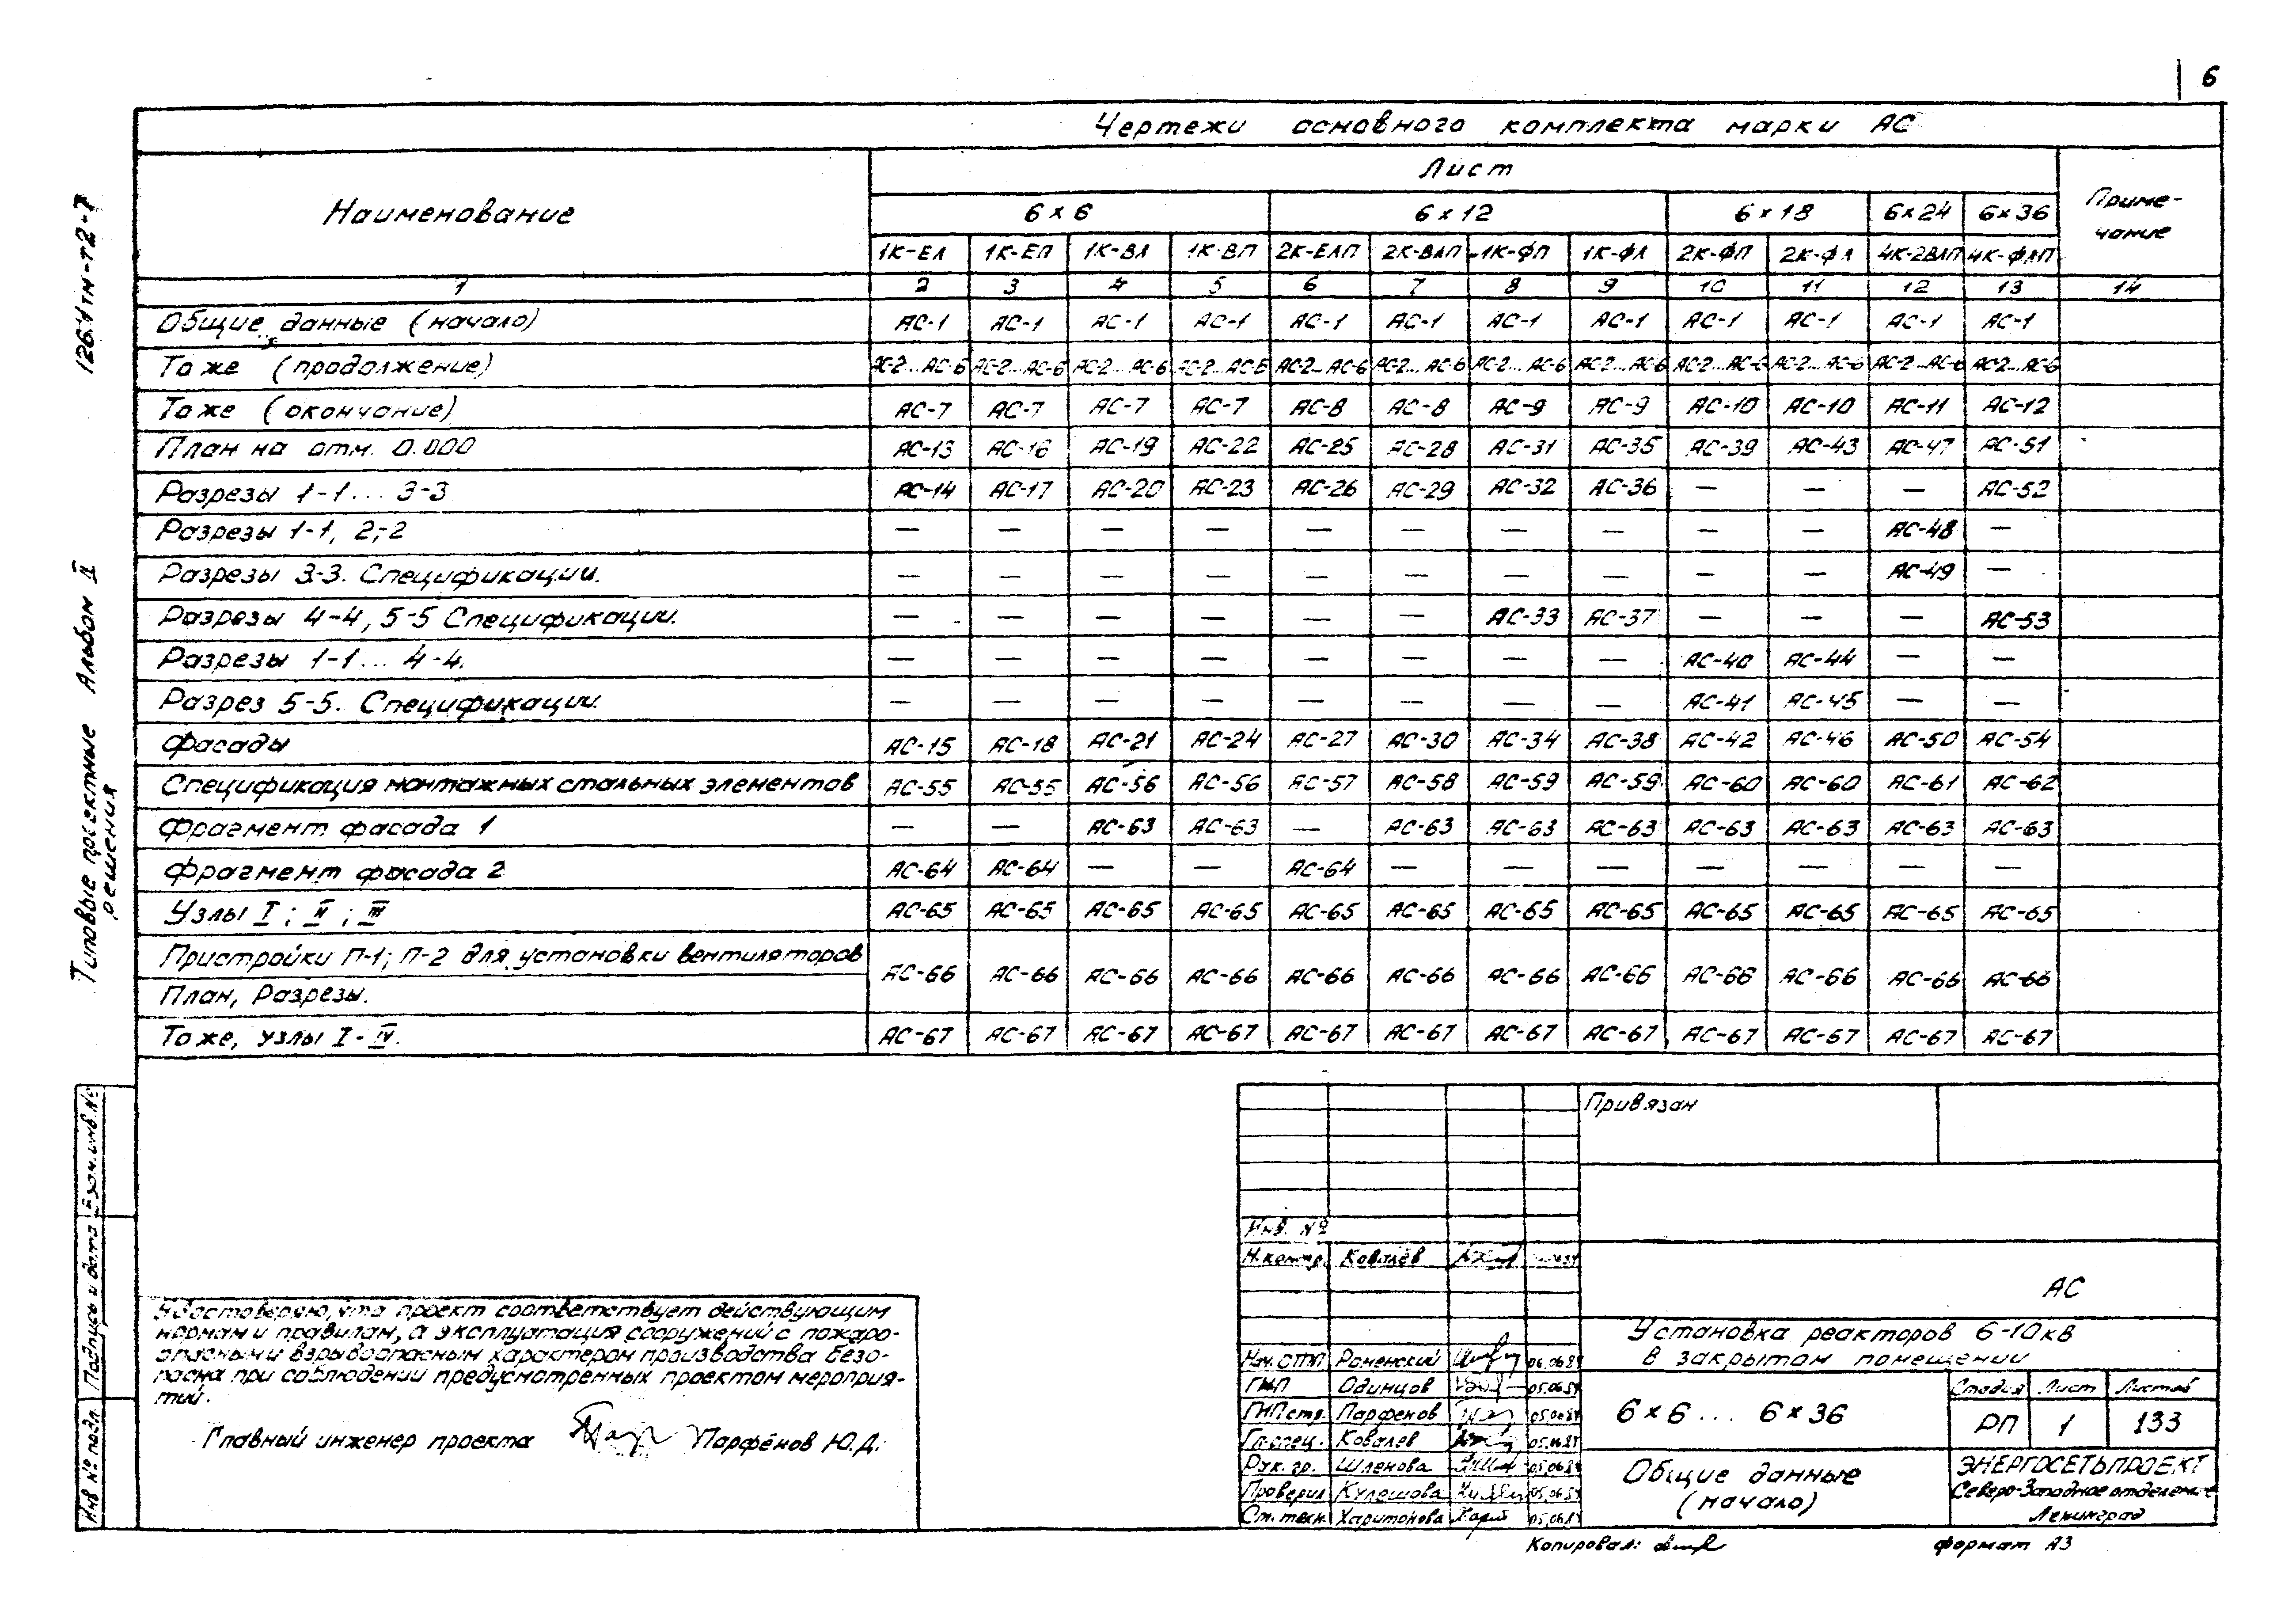 6
Чертежи основного комплекта марки АС
Наименование
Лист
Приме-
чание
6х6 6х12 6х18 6х24 6х36
1К-ЕЛ 1К-ЕП 1К-ВЛ 1К-ВП 2К-ЕЛП 2К-ВЛП 1К-ФП 1К-ФЛ 2К-ФП 2К-ФЛ 4К-2ВЛП 4К-ФЛП
1 2 3 4 5 6 7 8 9 10 11 12 13 14
Общие данные (начало) АС-1 АС-1 АС-1 АС-1 АС-1 АС-1 АС-1 АС-1 АС-1 АС-1 АС-1 АС-1
То же (продолжение) АС-2...АС-6 АС-2...АС-6 АС-2...АС-6 АС-2...АС-6 АС-2...АС-6 АС-2...АС-6 АС-2...АС-6 АС-2...АС-6 АС-2...АС-6 АС-2...АС-6 АС-2...АС-6 АС-2...АС-6
То же (окончание) АС-7 АС-7 АС-7 АС-7 АС-8 АС-8 АС-9 АС-9 АС-10 АС-10 АС-11 АС-12
План на отм. 0.000 АС-13 АС-16 АС-19 АС-22 АС-25 АС-28 АС-31 АС-35 АС-39 АС-43 АС-47 АС-51
Разрезы 1-1... 3-3 АС-14 АС-17 АС-20 АС-23 АС-26 АС-29 АС-32 АС-36 — — — АС-52
Разрезы 1-1, 2-2 — — — — — — — — — — АС-48 —
Разрезы 3-3. Спецификации. — — — — — — — — — — АС-49 —
Разрезы 4-4, 5-5 Спецификации. — — — — — — АС-33 АС-37 — — — АС-53
Разрезы 1-1... 4-4. — — — — — — — — АС-40 АС-44 — —
Разрез 5-5. Спецификации. — — — — — — — — АС-41 АС-45 — —
Фасады АС-15 АС-18 АС-21 АС-24 АС-27 АС-30 АС-34 АС-38 АС-42 АС-46 АС-50 АС-54
Спецификация монтажных стальных элементов АС-55 АС-55 АС-56 АС-56 АС-57 АС-58 АС-59 АС-59 АС-60 АС-60 АС-61 АС-62
Фрагмент фасада 1 — — АС-63 АС-63 — АС-63 АС-63 АС-63 АС-63 АС-63 АС-63 АС-63
Фрагмент фасада 2 АС-64 АС-64 — — АС-64 — — — — — — —
Узлы I; II; III АС-65 АС-65 АС-65 АС-65 АС-65 АС-65 АС-65 АС-65 АС-65 АС-65 АС-65 АС-65
Пристройки П-1; П-2 для установки вентиляторов
План, Разрезы. АС-66 АС-66 АС-66 АС-66 АС-66 АС-66 АС-66 АС-66 АС-66 АС-66 АС-66 АС-66
То же, узлы I-IV. АС-67 АС-67 АС-67 АС-67 АС-67 АС-67 АС-67 АС-67 АС-67 АС-67 АС-67 АС-67
1261тм-т2-7
Типовые проектные Альбом II
решения
Взам.инв.№
Подпись и дата
Инв № подл.
Удостоверяю, что проект соответствует действующим
нормам и правилам, а эксплуатация сооружений с пожаро-
опасным и взрывоопасным характером производства безо-
пасна при соблюдении предусмотренных проектом мероприя-
тий.
Главный инженер проекта Парфёнов Ю.Д.
Привязан
Инв. №
Н.контр. Ковалёв
АС
Установка реакторов 6-10кв
в закрытом помещении
Нач. ОТП Роменский 06.06.84
ГИП Одинцов 05.06.84
ГИП стр. Парфенов 05.06.84
Гл.спец. Ковалев 05.06.84
Рук. гр. Шленова 05.06.84
Проверил Кулешова 05.06.84
Ст. техн. Харитонова 05.06.84
6х6... 6х36
Стадия Лист Листов
РП 1 133
Общие данные
(начало)
ЭНЕРГОСЕТЬПРОЕКТ
Северо-Западное отделение
Ленинград
Копировал:
формат А3